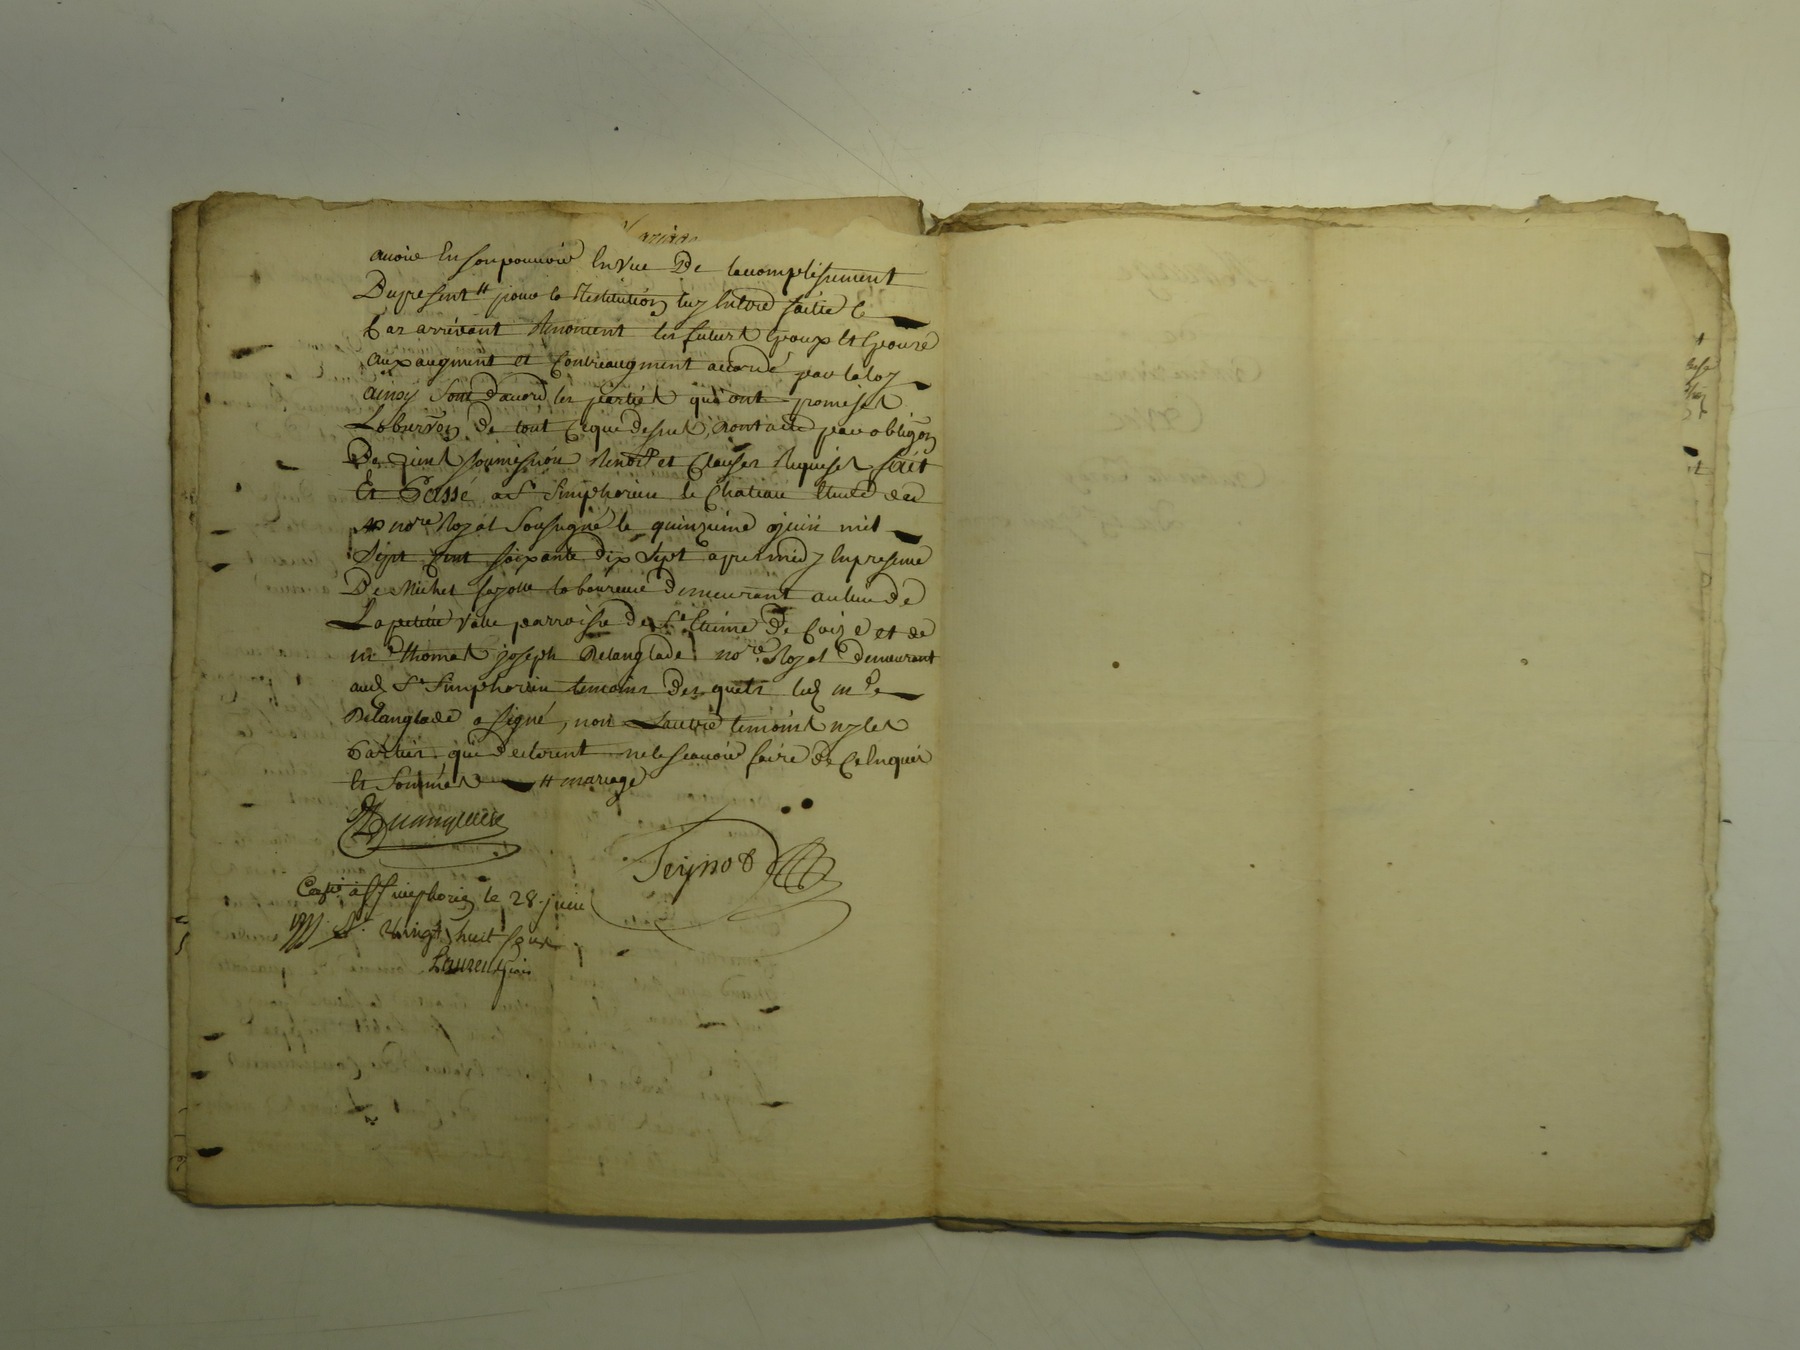 avoir En son pouvoir En vue De lacomplisement
Dupresent # pour la Restitution luy Entre faitte le
Cas arrivant Renoncent les futurs Epoux et Epouse
aux augment et Contreaugment accordé par la loy
ainsy sont d'acord les partiës qui ont promises
L'observer de tout ce que dessus, par obligon
De biens soumission Renon et Clauses Requises fait
Et Passé a St Simphorien le Château Etude du
nore Royal Soussigné le quinzieme juin mil
Sept Cent soixante dix Sept apres midy En presence
De Michel fayolle laboureur demeurant au lieu de
La petitte valle parroisse de St Etienne De Coize et de
me thomas joseph Delanglade nore Royal demeurant
aud St Simphorien temoins desquels led me
Delanglade a signé, non Lautre temoins ny les
Parties qui declarent ne le scavoir faire de Ce Enquis
Et Sommés # mariage
Delanglade
Teynod
à St Simphorien le 28 juin
1777 R. Vingt huit sous
Laurençon